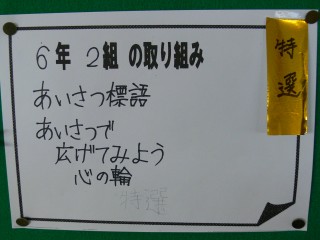 6年 2組 の取り組み
あいさつ標語
あいさつで
広げてみよう
心の輪
特選
特選